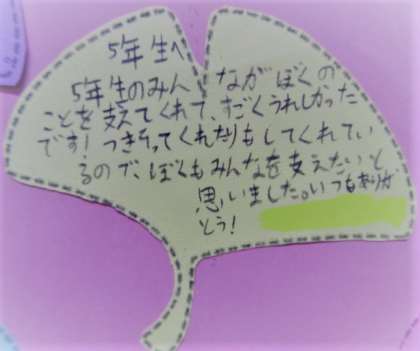 5年生へ
5年生のみんながぼくの
ことを支えてくれて、すごくうれしかった
です！つきそってくれたりもしてくれてい
るので、ぼくもみんなを支えたいと
思いました。いつもありが
とう！